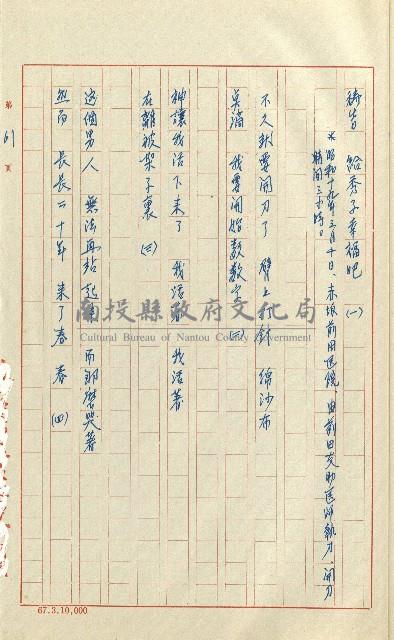 給秀子幸福吧 (一)
※昭和十九年三月十日、赤坂前田医院 由前田友助医师執刀、開刀
時間三小時。
不久就要開刀了 臂上打針 綿沙布
臭滿 我要開始數數字 (二)
神讓我活下来了 我活着 我活著
在離被架子裏 (三)
這個男人 無法再站起来 而那麼哭著
然而 長長二十年 来了春 春 (四)
第 61 頁
南投縣政府文化局
Cultural Bureau of Nantou County Government
67.3.10,000